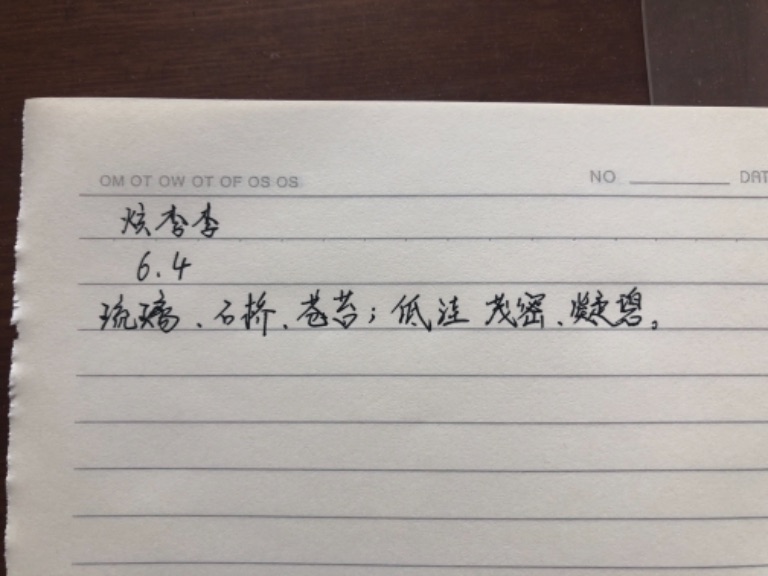 OM OT OW OT OF OS OS
NO DAT
炫李李
6.4
琉璃、石桥、苍苔；低洼 茂密、凝碧。